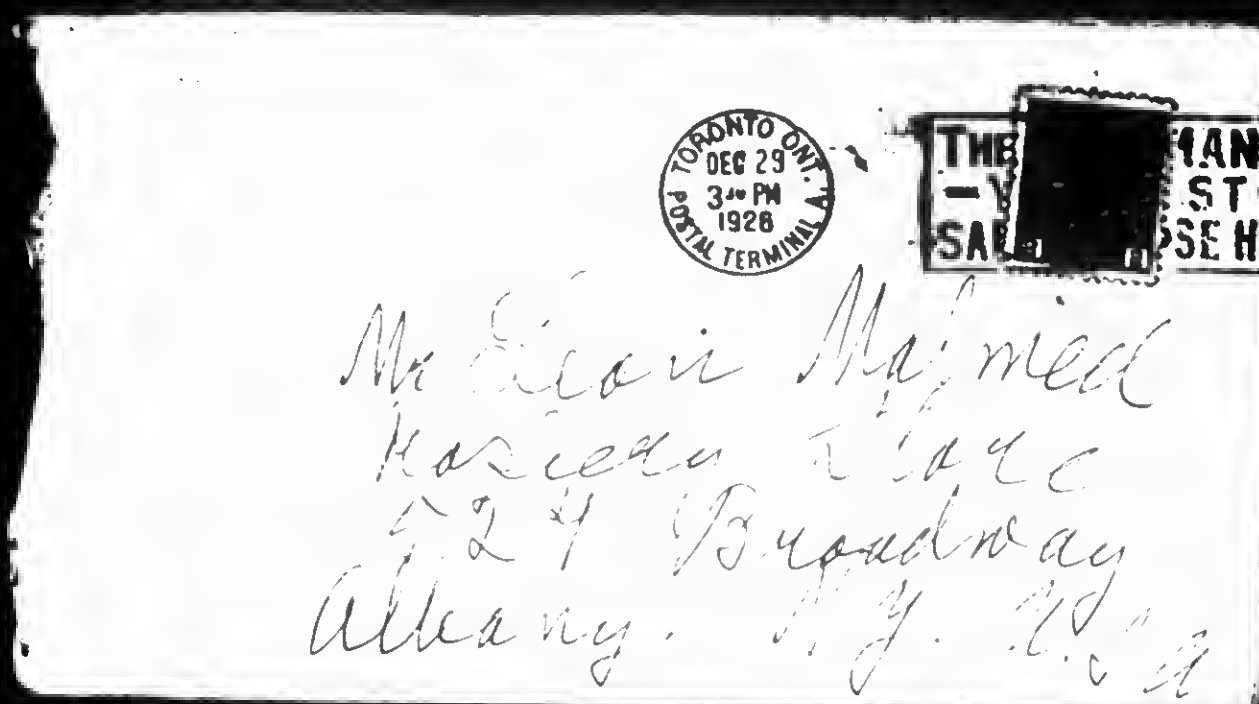 TORONTO ONT.
DEC 29
3 PM
1928
POSTAL TERMINAL A.
THE MAN
— Y ST
SA SE H
Mr Leon Malmed
Hosiery Store
524 Broadway
Albany. N.Y. U.S.A